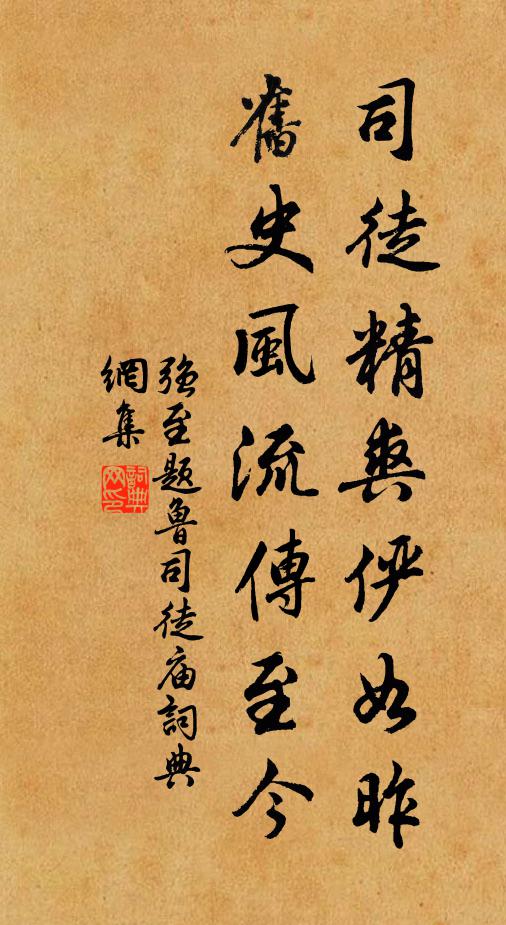 司徒精爽俨如昨
舊史風流傳至今
強至题魯司徒庙詞典
網集
詞典网印